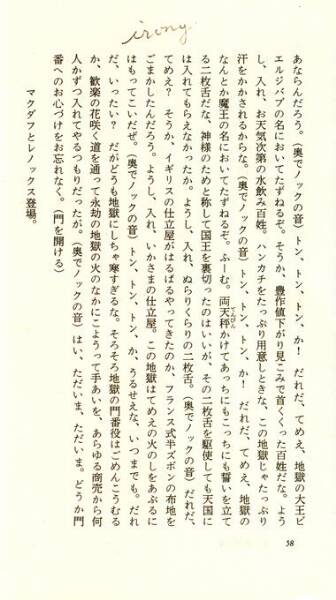 irony
あならんだろう。（奥でノックの音）トン、トン、トン、か！　だれだ、てめえ、地獄の大王ビ
エルジバブの名においてたずねるぞ。そうか、豊作値下がり見こみで首くくった百姓だな。よう
し、入れ、お天気次第の水飲み百姓。ハンカチをたっぷり用意しときな、この地獄じゃたっぷり
汗をかかされるからな。（奥でノックの音）トン、トン、トン、か！　だれだ、てめえ、地獄の
なんとか魔王の名においてたずねるぞ。ふーむ。両天秤かけてあっちにもこっちにも誓いを立て
てんびん
る二枚舌だな、神様のためと称して国王を裏切ったのはいいが、その二枚舌を駆使しても天国に
は入れてもらえなかったか。ようし、入れ、ぬらりくらりの二枚舌。（奥でノックの音）だれだ、
てめえ？　そうか、イギリスの仕立屋がはるばるやってきたのか、フランス式半ズボンの布地を
ごまかしたんだろう。ようし、入れ、いかさまの仕立屋。この地獄はてめえの火のしをあぶるに
はもってこいだぜ。（奥でノックの音）トン、トン、トン、か、うるせえな、いつまでも。だれ
だ、いったい？　だがどうも地獄にしちゃ寒すぎるな。そろそろ地獄の門番役はごめんこうむる
か、歓楽の花咲く道を通って永劫の地獄の火のなかにこようって手あいを、あらゆる商売から何
人かずつ入れてやるつもりだったが。（奥でノックの音）はい、ただいま、ただいま。どうか門
番へのお心づけをお忘れなく。（門を開ける）
マクダフとレノックス登場。
58